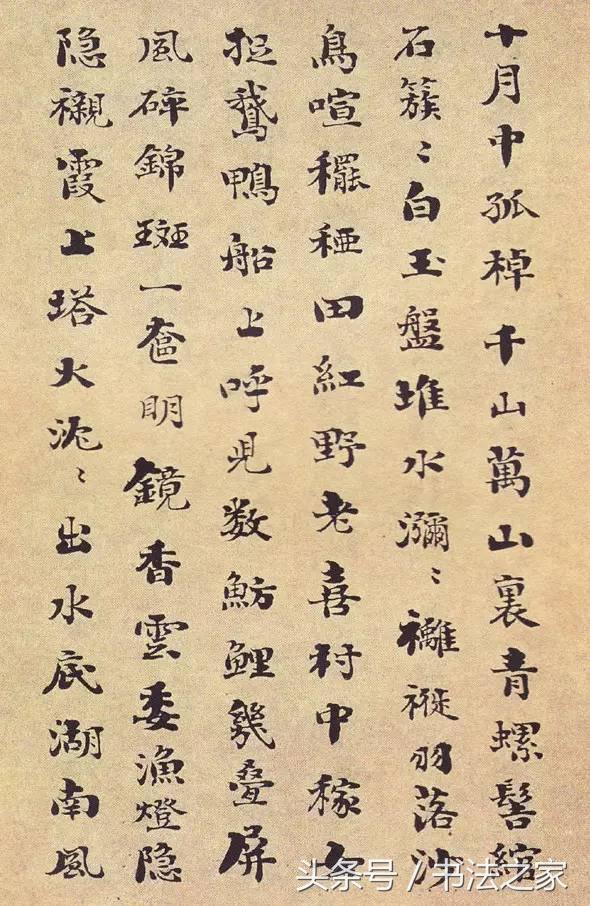 十月中孤棹千山萬山裏青螺髻綰
石簇〻白玉盤堆水瀰〻褵褷羽落沙
鳥喧䆉稏田紅野老喜村中稼人
捉鵝鴨船上呼児数魴鯉幾疊屏
風碎錦斑一奩明鏡香雲委漁燈隐
隐襯霞上塔火〻出水底湖南風
头条号 / 书法之家